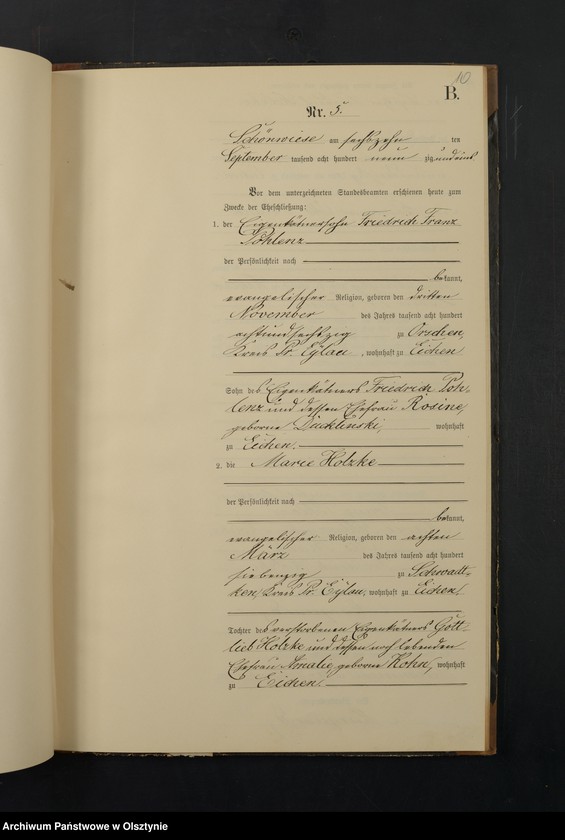 10
B.
Nr. 5.
Schönwiese am sechszehn ten
September tausend acht hundert neun zig und eins
Vor dem unterzeichneten Standesbeamten erschienen heute zum
Zwecke der Eheschließung:
1. der Eigenkäthnersohn Friedrich Franz
Pohlenz
der Persönlichkeit nach
bekannt,
evangelischer Religion, geboren den dritten
November des Jahres tausend acht hundert
achtundsechszig zu Orschen,
Kreis Pr. Eylau, wohnhaft zu Eichen
Sohn des Eigenkätners Friedrich Poh-
lenz und dessen Ehefrau Rosine,
geborne wohnhaft
zu Eichen.
2. die Marie Holzke
der Persönlichkeit nach
bekannt,
evangelischer Religion, geboren den achten
März des Jahres tausend acht hundert
siebenzig zu Schwadt-
ken, Kreis Pr. Eylau, wohnhaft zu Eichen
Tochter des verstorbenen Eigenkätners Gott-
lieb Holzke und dessen noch lebenden
Ehefrau Amalie, geborne Kohn, wohnhaft
zu Eichen.
Archiwum Państwowe w Olsztynie